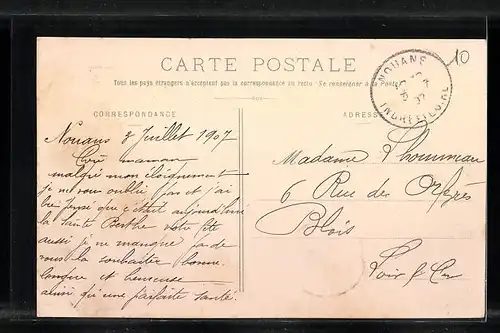 CARTE POSTALE
Tous les pays étrangers n'acceptent pas la correspondance au recto (Se renseigner à la Poste)
CORRESPONDANCE
ADRESSE
NOUANS
INDRE-ET-LOIRE
10
Nouans 8 Juillet 1907
maman
malgré mon éloignement
je ne vous oublie pas et j'ai
pensé que c'était aujourd'hui
la Sainte Berthe votre fête
aussi je ne manque pas de
vous la souhaiter bonne
longue et heureuse
ainsi qu'une parfaite santé.
Madame Thommeau
6 Rue des Orfèvres
Blois
Loir & Cher